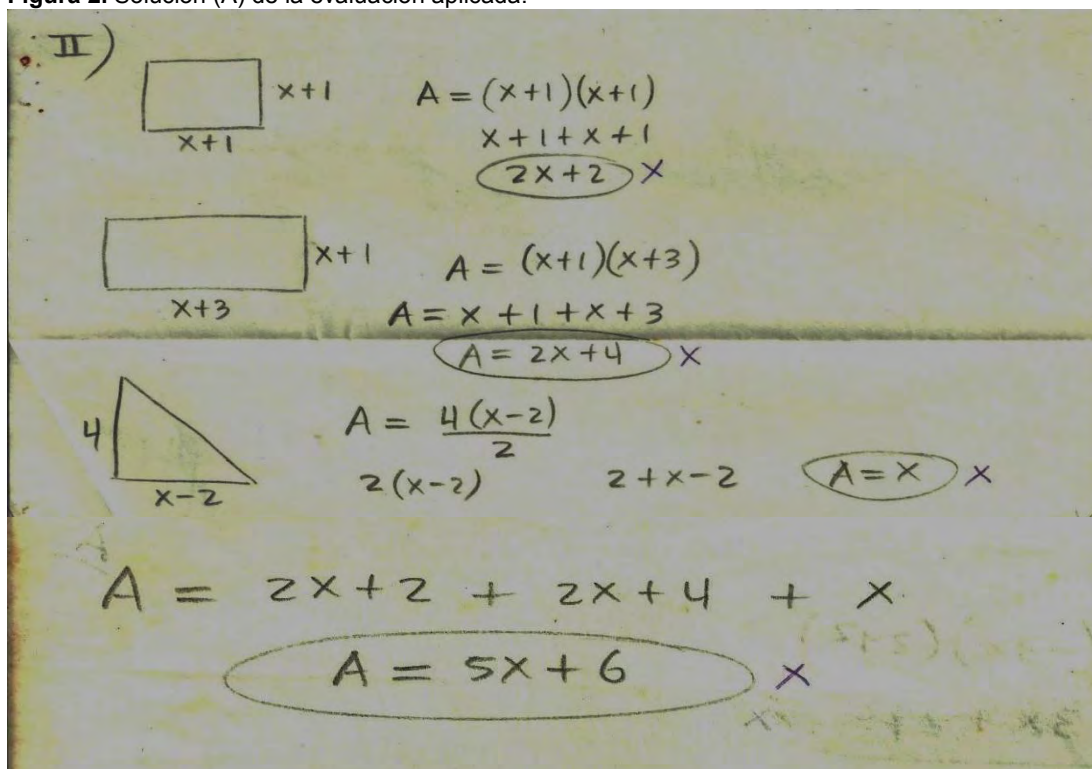 Figura 2. Solución (A) de la evaluación aplicada.
II)
x+1
x+1
A = (x+1)(x+1)
x+1+x+1
2x+2 x
x+1
x+3
A = (x+1)(x+3)
A = x +1+x+3
A = 2x+4 x
4
x-2
A = 4(x-2)/2
2(x-2) 2+x-2 A=x x
A = 2x+2 + 2x+4 + x
A = 5x+6 x